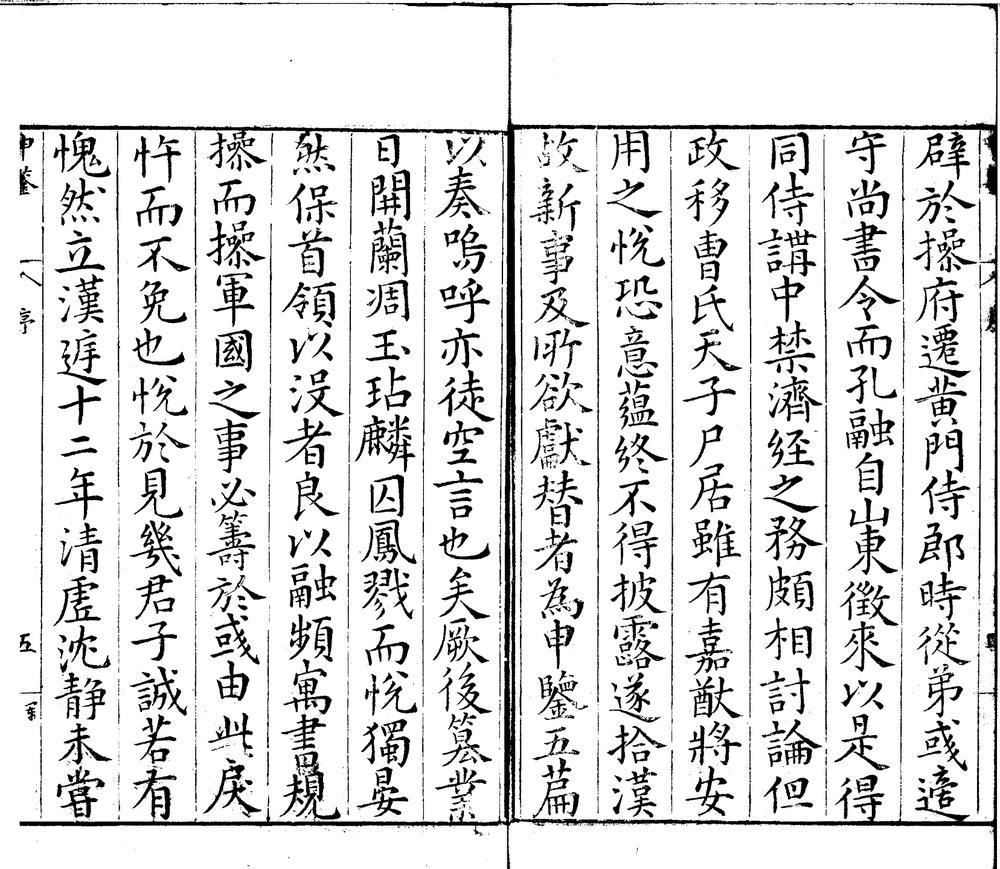 辟於操府遷黄門侍郎時從弟彧適
守尚書令而孔融自山東徵來以是得
同侍講中禁濟經之務頗相討論但
政移曹氏天子尸居雖有嘉猷將安
用之恱恐意藴終不得披露遂拾漢
故新事及所欲獻替者為申鑒五篇
以奏嗚呼亦徒空言也矣厥後篡業
日開蘭凋玉玷麟囚鳳戮而恱獨晏
然保首領以沒者良以融頻寓書規
操而操軍國之事必籌於彧由此戾
忤而不免也恱於見幾君子誠若有
愧然立漢廷十二年清虛沈静未嘗
申鑒 序 五